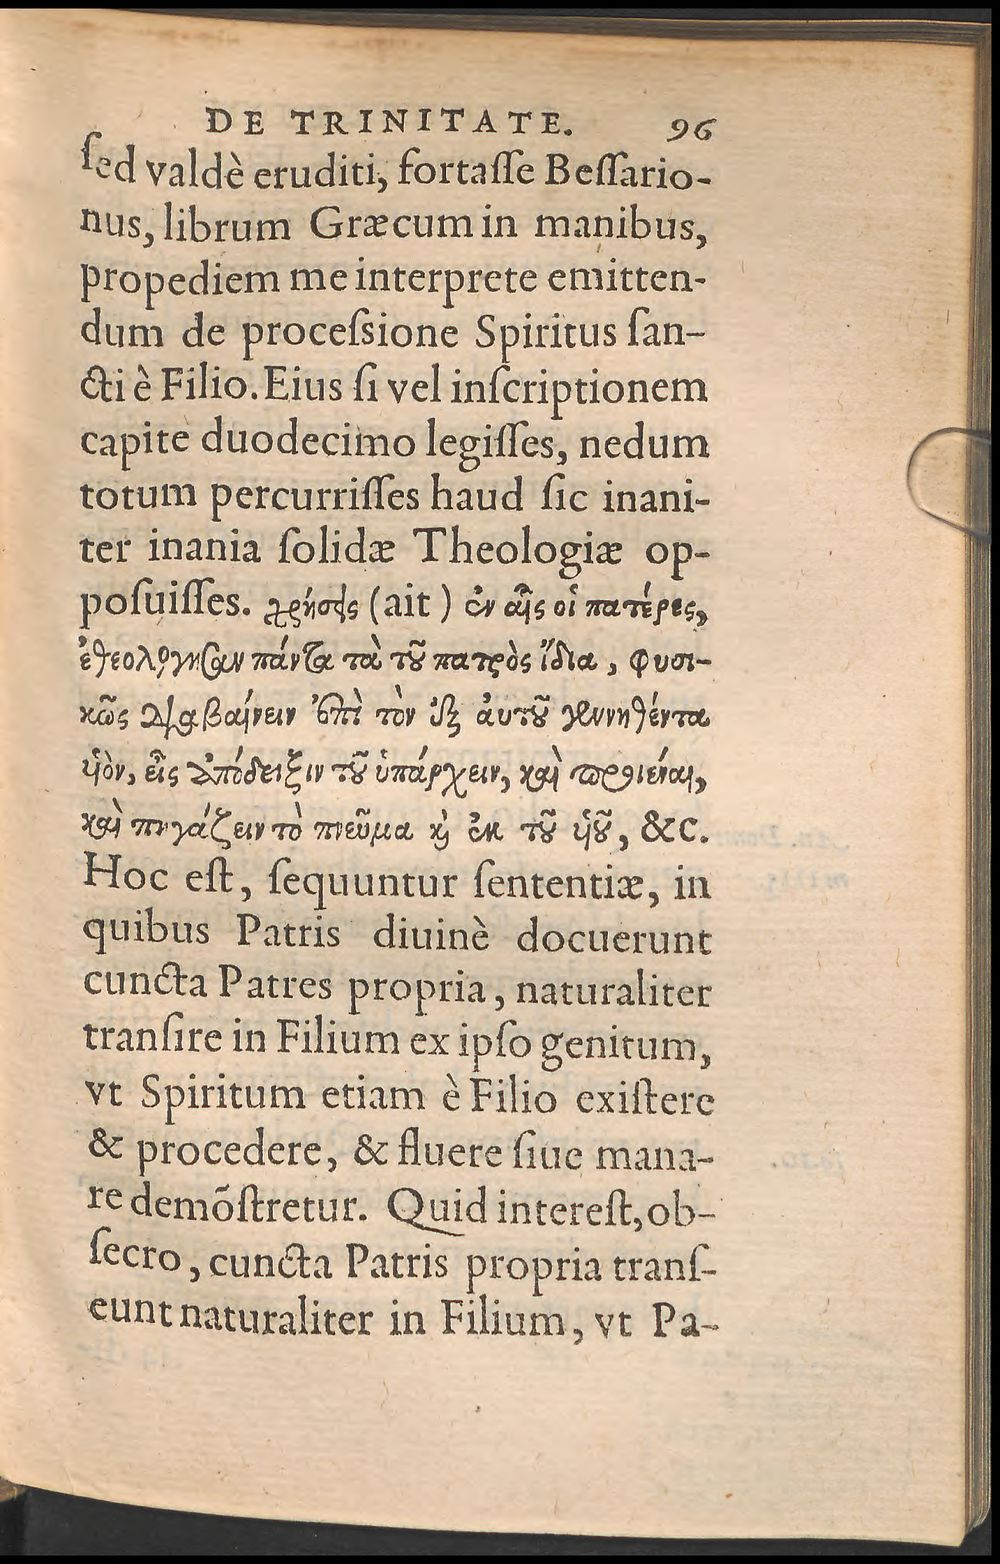 DE TRINITATE. 96
ſed valdè eruditi, fortaſſe Beſſario-
nus, librum Græcum in manibus,
propediem me interprete emitten-
dum de proceſsione Spiritus ſan-
cti è Filio. Eius ſi vel inſcriptionem
capite duodecimo legiſſes, nedum
totum percurriſſes haud ſic inani-
ter inania ſolidæ Theologiæ op-
poſuiſſes. χρήσεις (ait) ἐν αἷς οἱ πατέρες,
ἐθεολόγησαν πάντα τὰ τοῦ πατρὸς ἴδια, φυσι-
κῶς διαβαίνειν ἐπὶ τὸν ἐξ ἀυτοῦ γεννηθέντα
υἱὸν, εἰς ἀπόδειξιν τοῦ ὑπάρχειν, καὶ προϊέναι,
καὶ πηγάζειν τὸ πνεῦμα καὶ ἐκ τοῦ υἱοῦ, &c.
Hoc eſt, ſequuntur ſententiæ, in
quibus Patris diuinè docuerunt
cuncta Patres propria, naturaliter
tranſire in Filium ex ipſo genitum,
vt Spiritum etiam è Filio exiſtere
& procedere, & fluere ſiue mana-
re demõſtretur. Quid intereſt, ob-
ſecro, cuncta Patris propria tranſ-
eunt naturaliter in Filium, vt Pa-